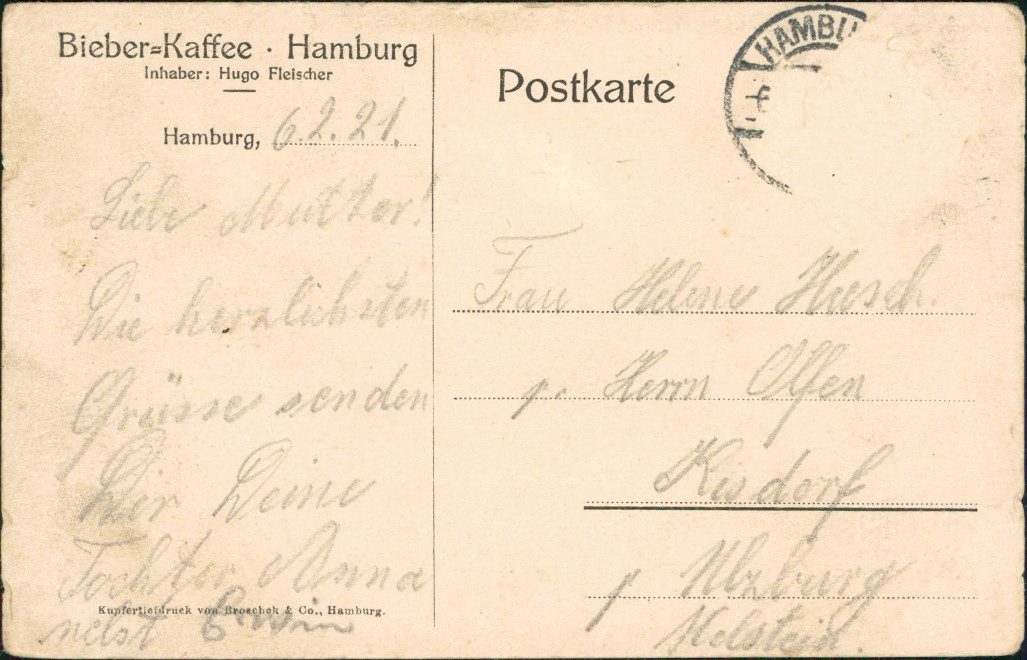 Bieber=Kaffee · Hamburg
Inhaber: Hugo Fleischer
Hamburg, 6.2.21.
Liebe Mutter!
Die herzlichsten
Grüsse senden
Dir Deine
Tochter Anna
Kupfertiefdruck von Broschek & Co., Hamburg.
nebst Erwin
Postkarte
HAMBU
Frau Helene Huesch.
p. Herrn Olfen
Kisdorf
p Ulzburg
Holstein.